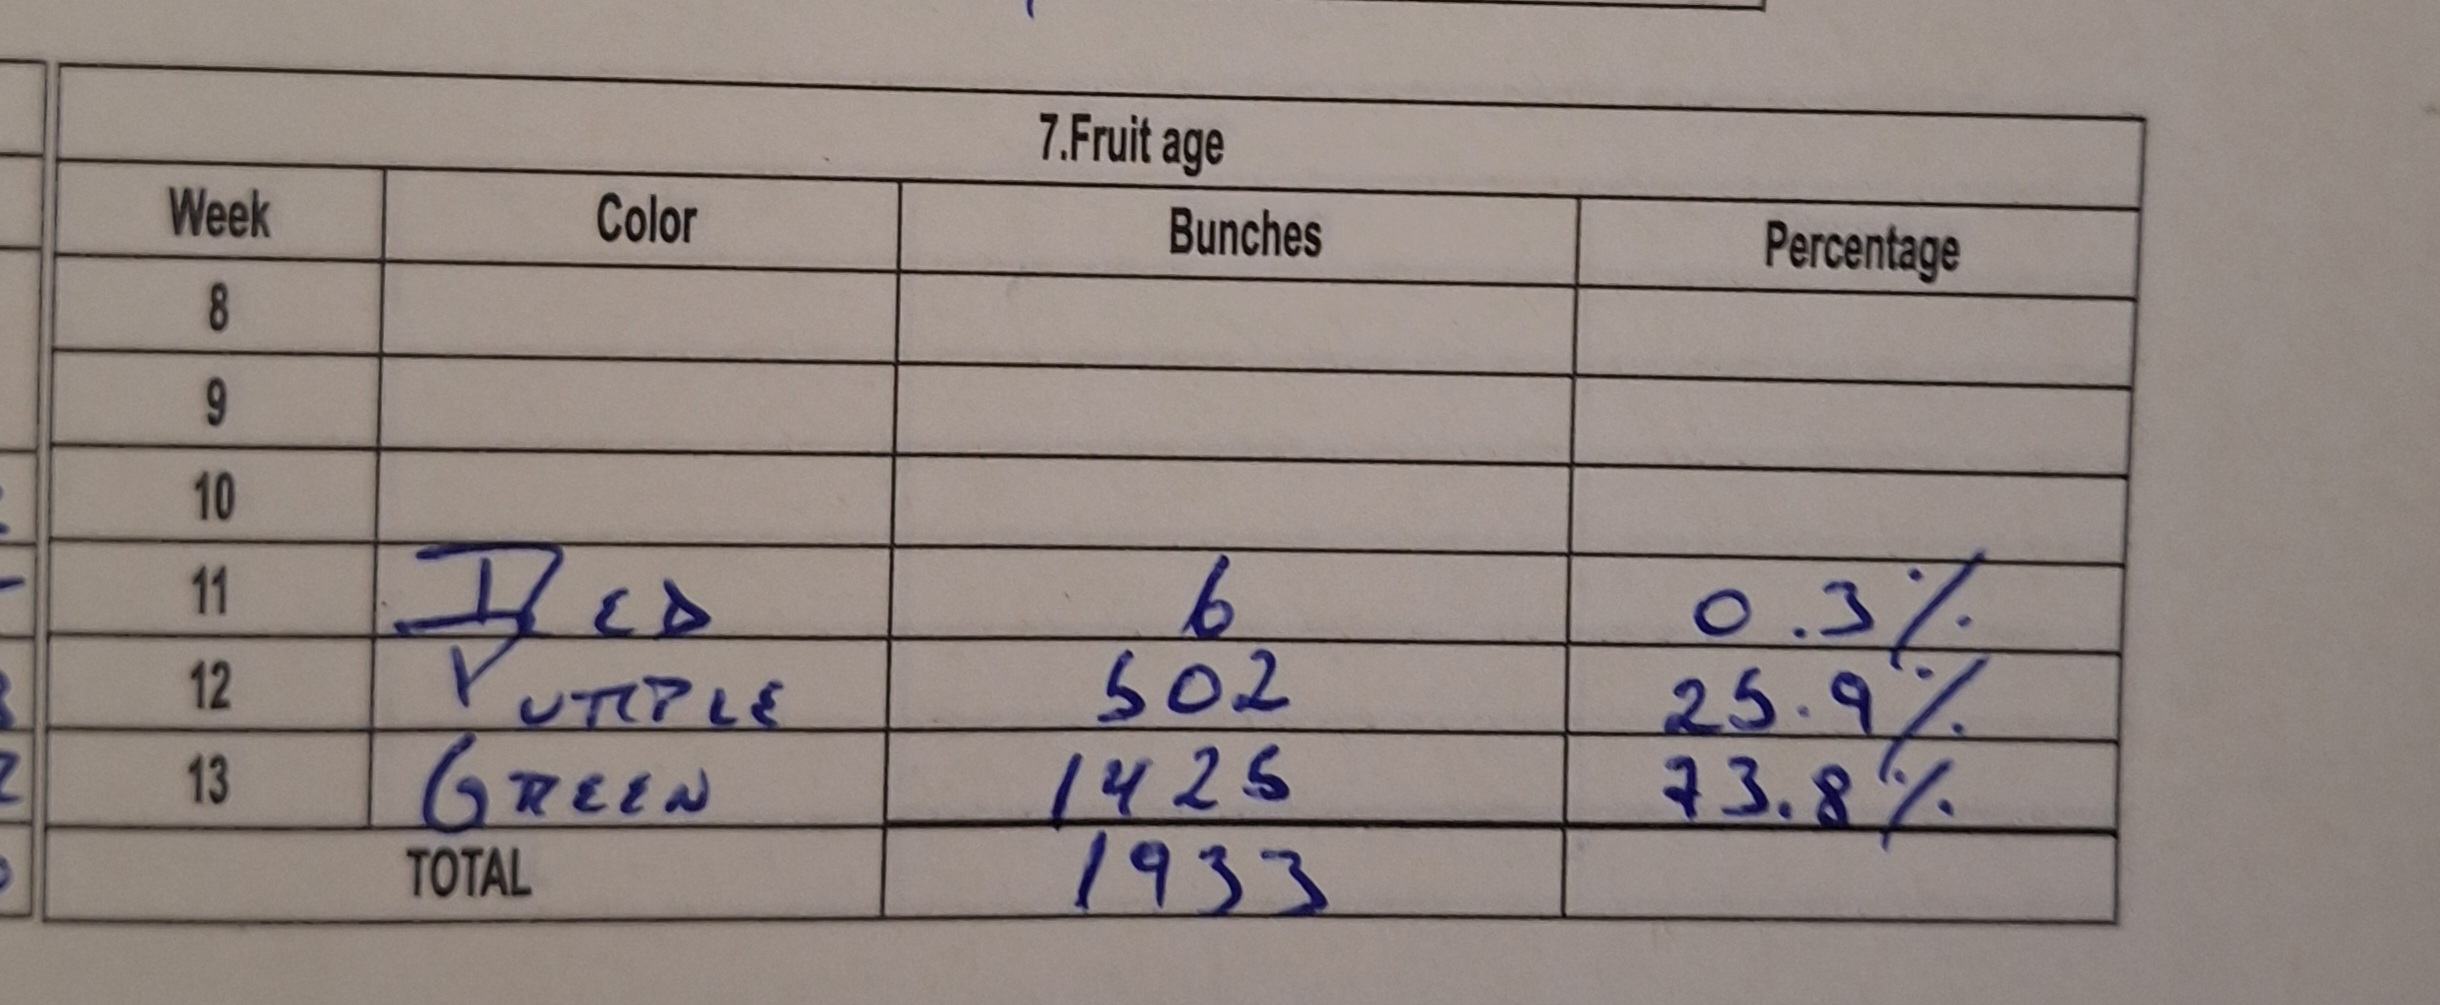 7.Fruit age
Week Color Bunches Percentage
8
9
10
11 RED 6 0.3%
12 PURPLE 502 25.9%
13 GREEN 1425 73.8%
TOTAL 1933